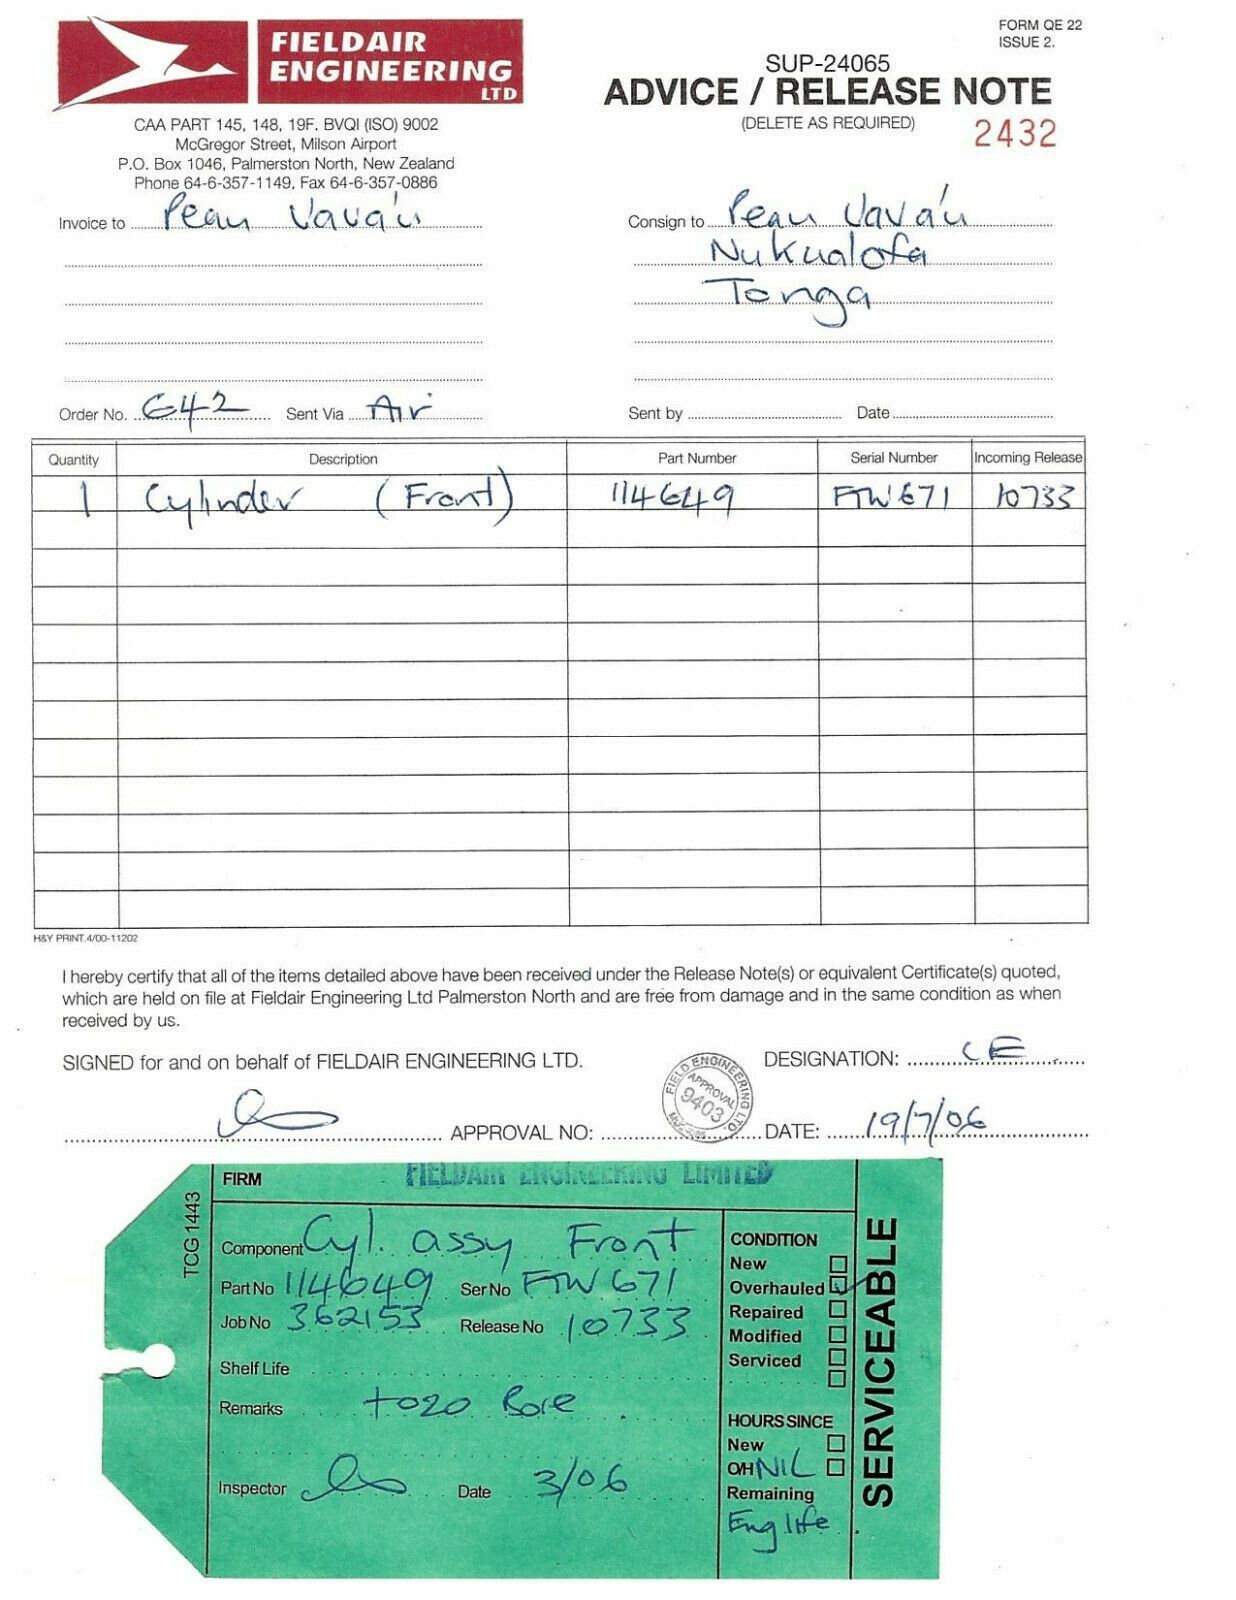 FIELDAIR
ENGINEERING
LTD
CAA PART 145, 148, 19F. BVQI (ISO) 9002
McGregor Street, Milson Airport
P.O. Box 1046, Palmerston North, New Zealand
Phone 64-6-357-1149, Fax 64-6-357-0886
FORM QE 22
ISSUE 2.
SUP-24065
ADVICE / RELEASE NOTE
(DELETE AS REQUIRED)
2432
Invoice to Peau Vava'u
Consign to Peau Vava'u
Nukualofa
Tonga
Order No. 642 Sent Via Air
Sent by Date
Quantity Description Part Number Serial Number Incoming Release
1 Cylinder (Front) 114649 FTW671 10733
H&Y PRINT.4/00-11202
I hereby certify that all of the items detailed above have been received under the Release Note(s) or equivalent Certificate(s) quoted,
which are held on file at Fieldair Engineering Ltd Palmerston North and are free from damage and in the same condition as when
received by us.
SIGNED for and on behalf of FIELDAIR ENGINEERING LTD.
DESIGNATION: LE
FIELD ENGINEERING LTD.
APPROVAL
9403
APPROVAL NO: DATE: 19/7/06
TCG 1443
FIRM FIELDAIR ENGINEERING LIMITED
Component Cyl. assy Front
Part No 114649 Ser No FTW671
Job No 362153 Release No 10733
Shelf Life
Remarks +020 Bore
Inspector Date 3/06
CONDITION
New
Overhauled
Repaired
Modified
Serviced
HOURS SINCE
New
O/H NIL
Remaining
Eng life
SERVICEABLE